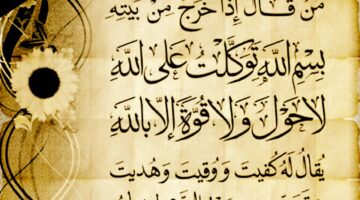 من قال إذا خرج من بيته
بِسْمِ اللَّهِ تَوَكَّلْتُ عَلَى اللَّهِ
لَا حَوْلَ وَلَا قُوَّةَ إِلَّا بِاللَّهِ
يُقَالُ لَهُ كُفِيتَ وَوُقِيتَ وَهُدِيتَ